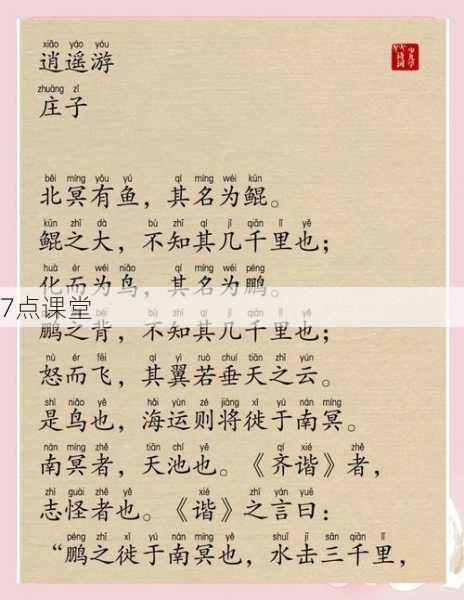 xiāo yáo yóu
逍遥游
zhuāng zǐ
庄子
běi míng yǒu yú qí míng wéi kūn
北冥有鱼，其名为鲲。
kūn zhī dà bù zhī qí jǐ qiān lǐ yě
鲲之大，不知其几千里也；
huà ér wéi niǎo qí míng wéi péng
化而为鸟，其名为鹏。
7点课堂
鹏之背，不知其几千里也；
nù ér fēi qí yì ruò chuí tiān zhī yún
怒而飞，其翼若垂天之云。
shì niǎo yě hǎi yùn zé jiāng xǐ yú nán míng
是鸟也，海运则将徙于南冥。
nán míng zhě tiān chí yě qí xié zhě
南冥者，天池也。《齐谐》者，
zhì guài zhě yě xié zhī yán yuē
志怪者也。《谐》之言曰：
péng zhī xǐ yú nán míng yě shuǐ jī sān qiān lǐ
“鹏之徙于南冥也，水击三千里，